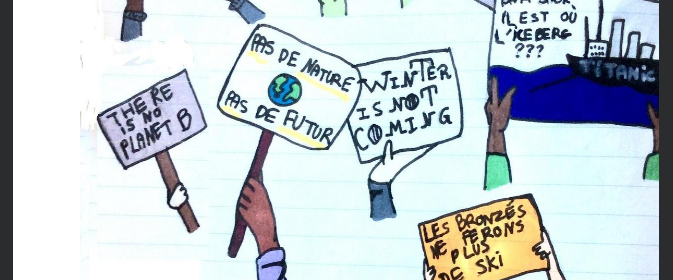 IL EST OÙ
L'ICEBERG
???
TITANIC
PAS DE NATURE
PAS DE FUTUR
WINTER
IS NOT
COMING
THERE
IS NO
PLANET B
LES BRONZÉS
NE FERONS
PLUS
DE SKI